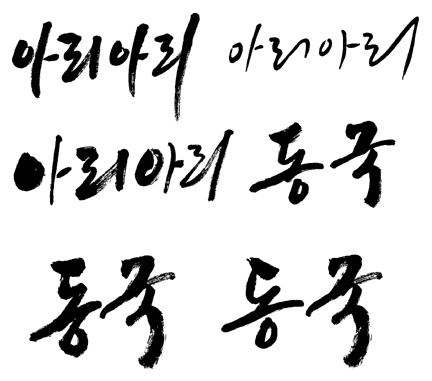 아리아리 아리아리
아리아리 동국
동국 동국